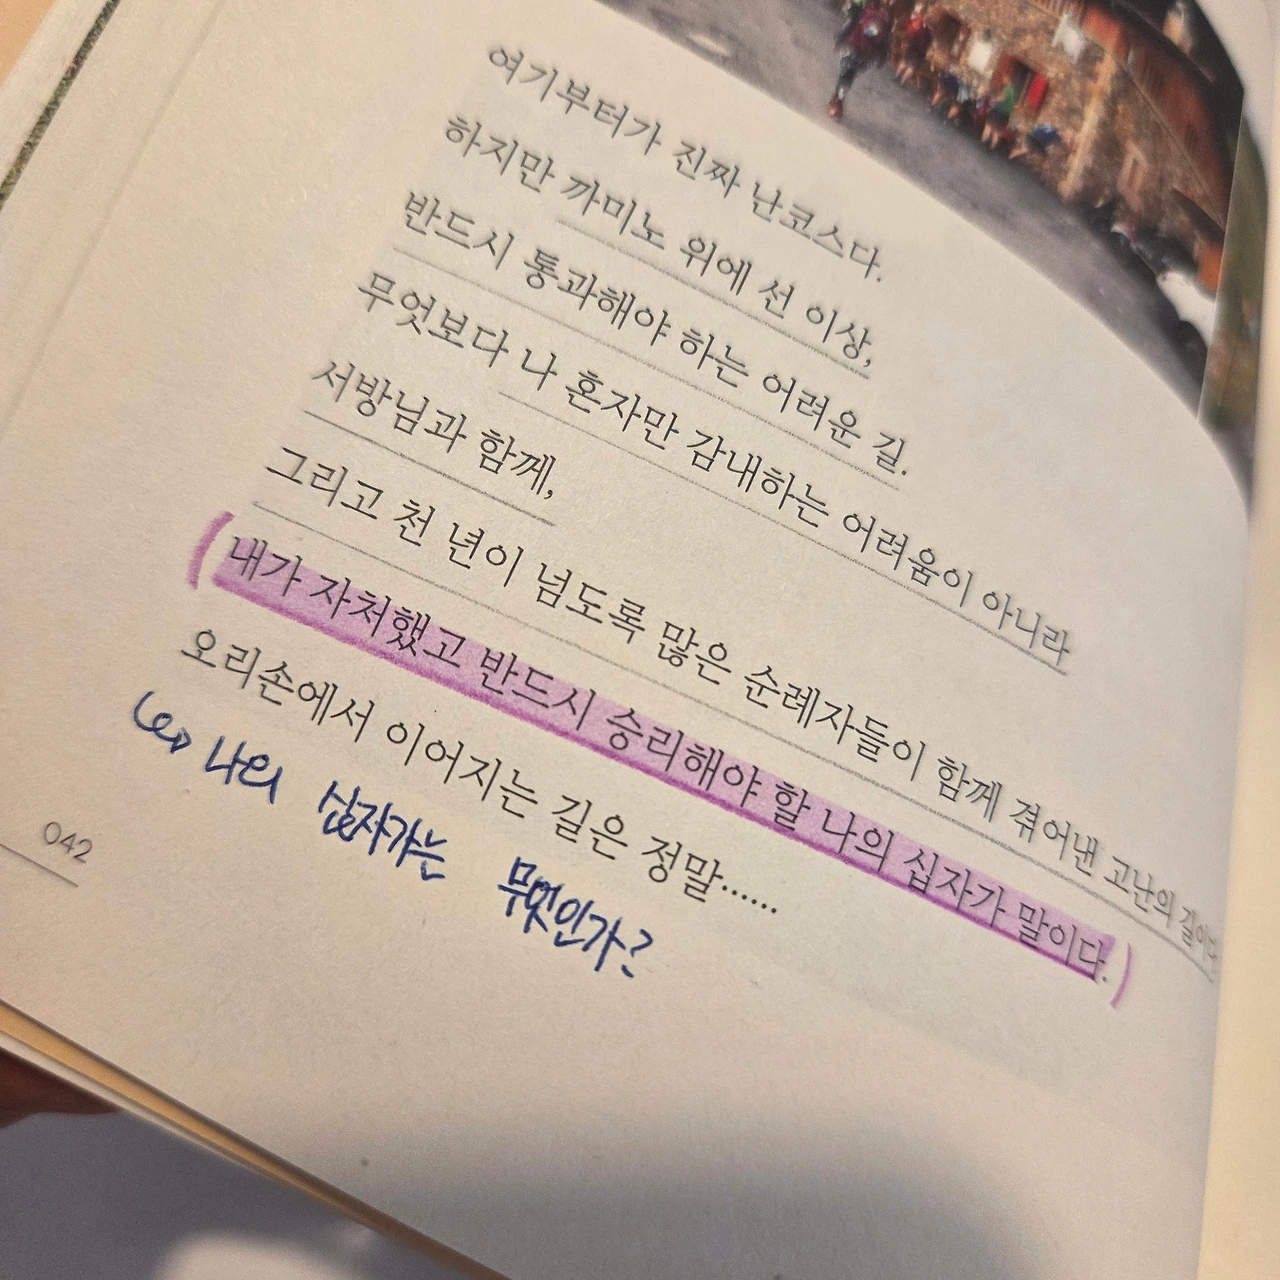 여기부터가 진짜 난코스다.
하지만 까미노 위에 선 이상,
반드시 통과해야 하는 어려운 길.
무엇보다 나 혼자만 감내하는 어려움이 아니라
서방님과 함께,
그리고 천 년이 넘도록 많은 순례자들이 함께 겪어낸 고난의 길이다.
(내가 자처했고 반드시 승리해야 할 나의 십자가 말이다.)
오리손에서 이어지는 길은 정말……
나의 십자가는 무엇인가?
042